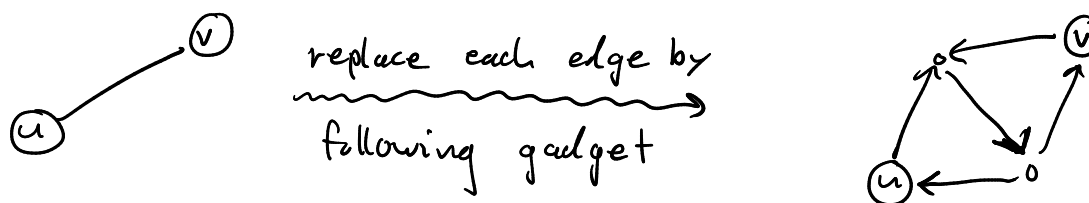 v
u
replace each edge by
following gadget
v
u